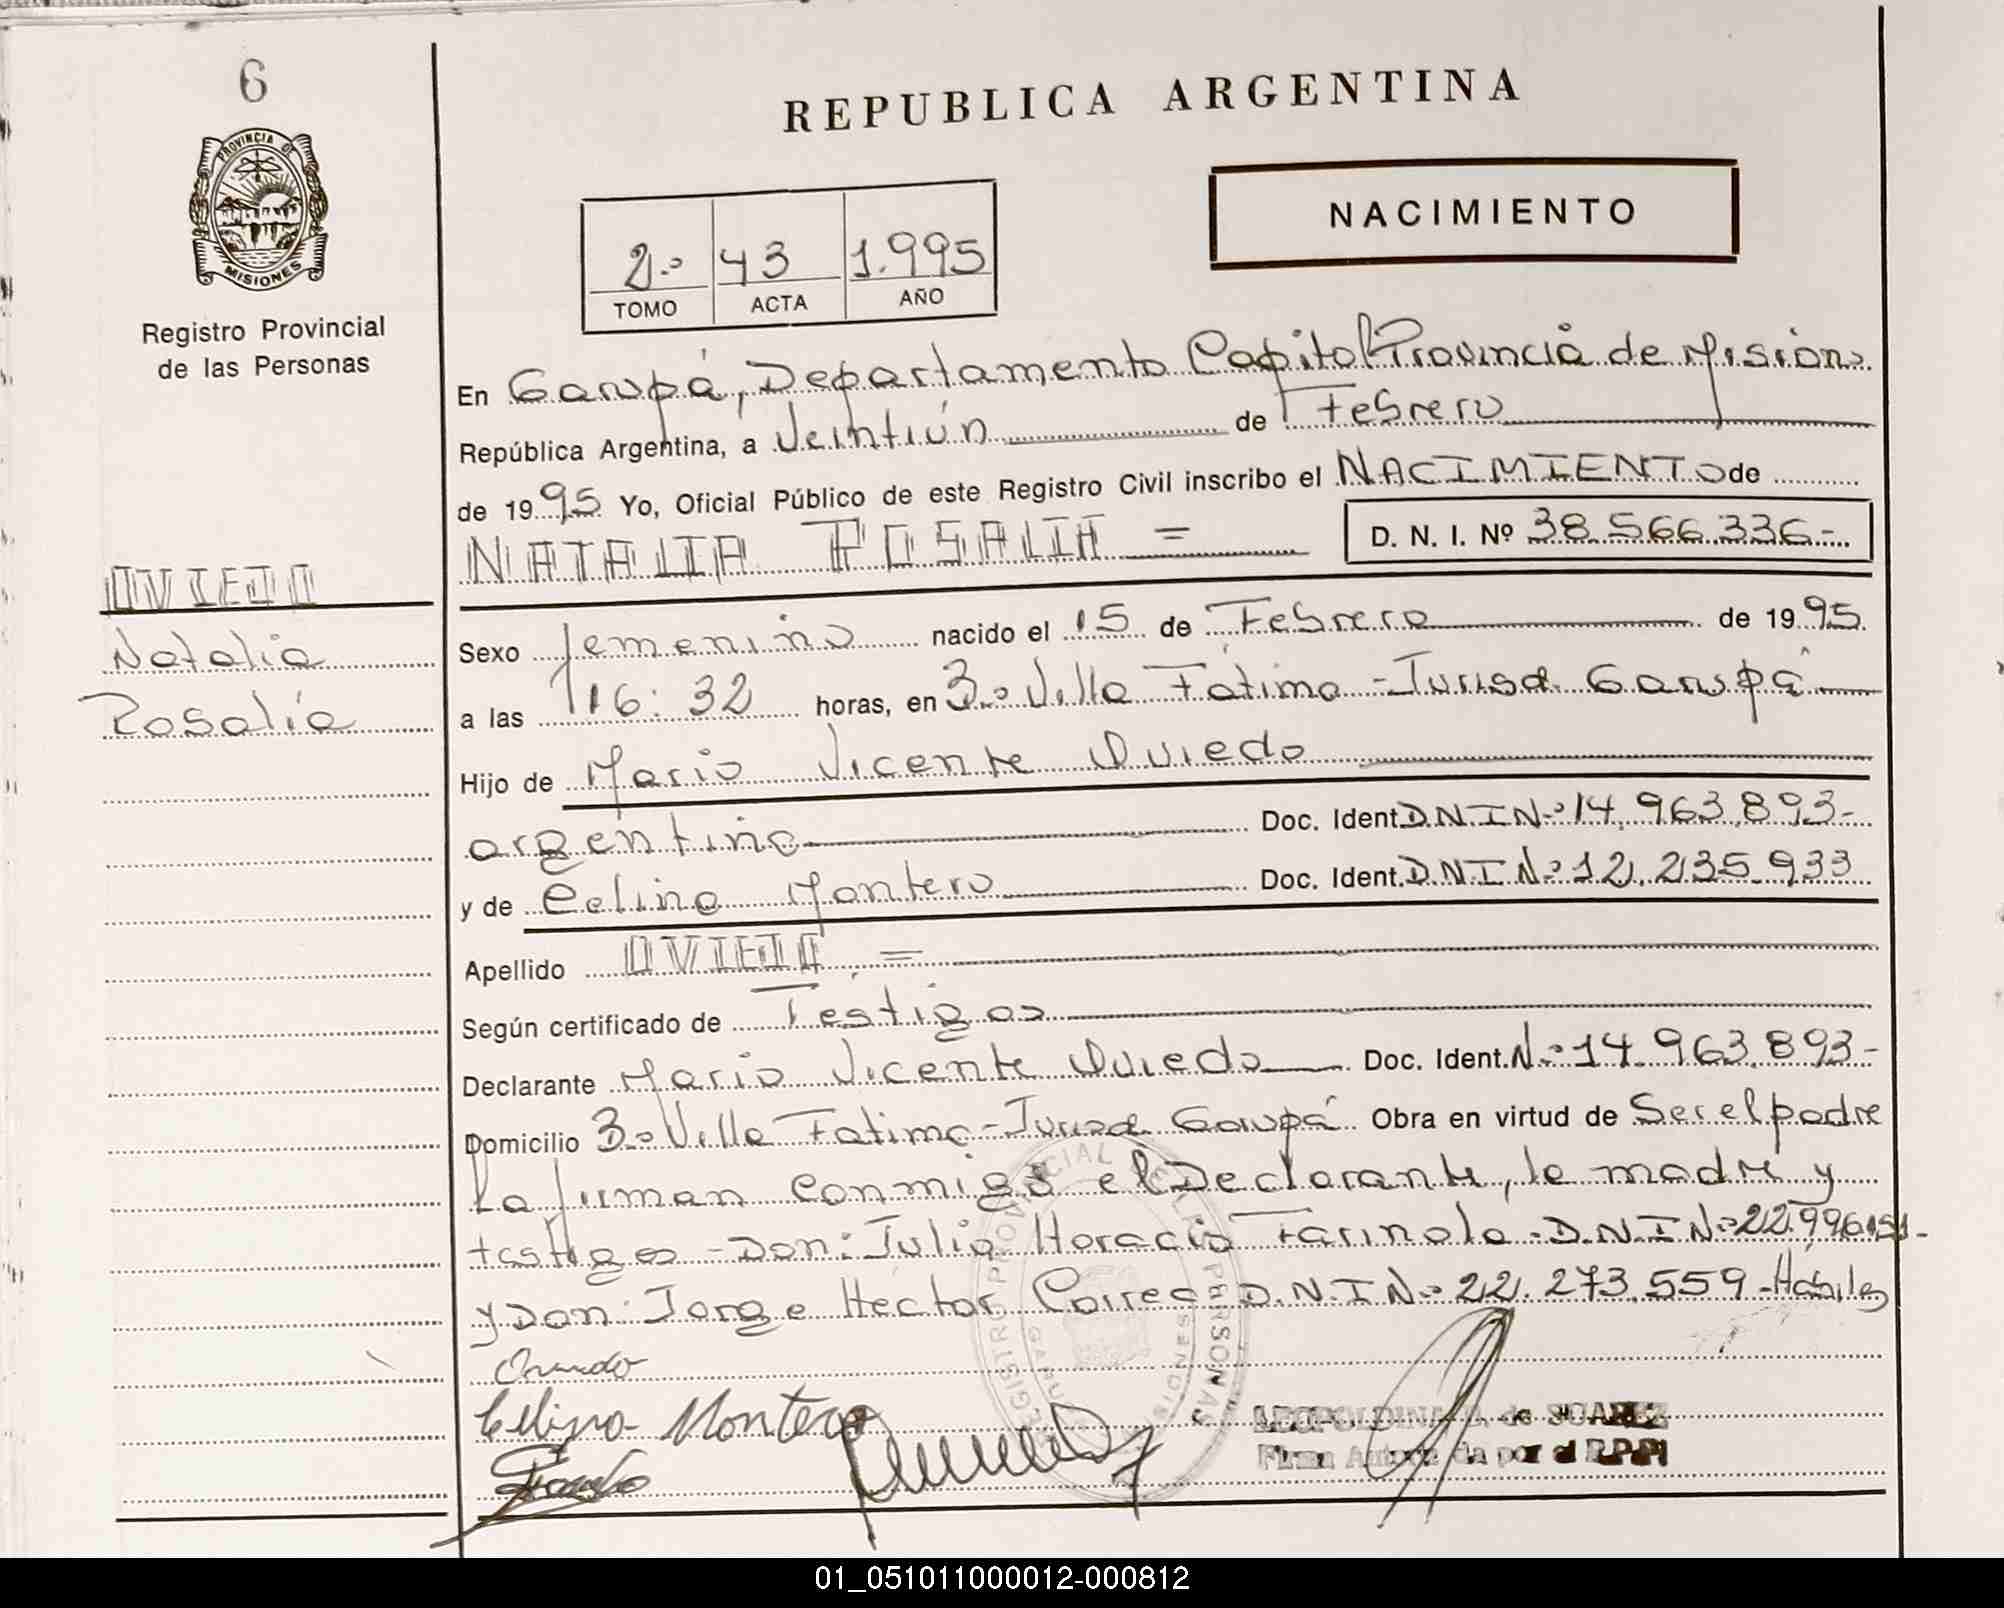 6
PROVINCIA DE
MISIONES
Registro Provincial
de las Personas
REPUBLICA ARGENTINA
NACIMIENTO
2º 43 1.995
TOMO ACTA AÑO
En Garupá, Departamento Capital Provincia de Mision
República Argentina, a Veintiún de Febrero
de 1995 Yo, Oficial Público de este Registro Civil inscribo el NACIMIENTO de
NATALIA ROSALIA =
D. N. I. Nº 38.566.336-
OVIEDO
Natalia
Rosalia
Sexo femenino nacido el 15 de Febrero de 1995
a las 16:32 horas, en Bº Villa Fátima - Jurisd Garupá
Hijo de Mario Vicente Oviedo
argentino Doc. Ident. DNI Nº 14.963.893-
y de Celina Montero Doc. Ident. DNI Nº 12.235.933
Apellido OVIEDO =
Según certificado de Testigos
Declarante Mario Vicente Oviedo Doc. Ident. Nº 14.963.893-
Domicilio Bº Villa Fatima - Jurisd Garupá Obra en virtud de Ser el padre
La firman conmigo el Declarante, la madre y
testigos - Don: Julio Horacio Farinola - D.N.I Nº 22.996.151-
y Don: Jorge Héctor Correa D.N.I Nº 22.273.559 - Hábiles
REGISTRO PROVINCIAL DE PERSONAS
MISIONES
Celina Montero
LEOPOLDINA de SUAREZ
Firma Autorizada por el R.P.P.
01_051011000012-000812